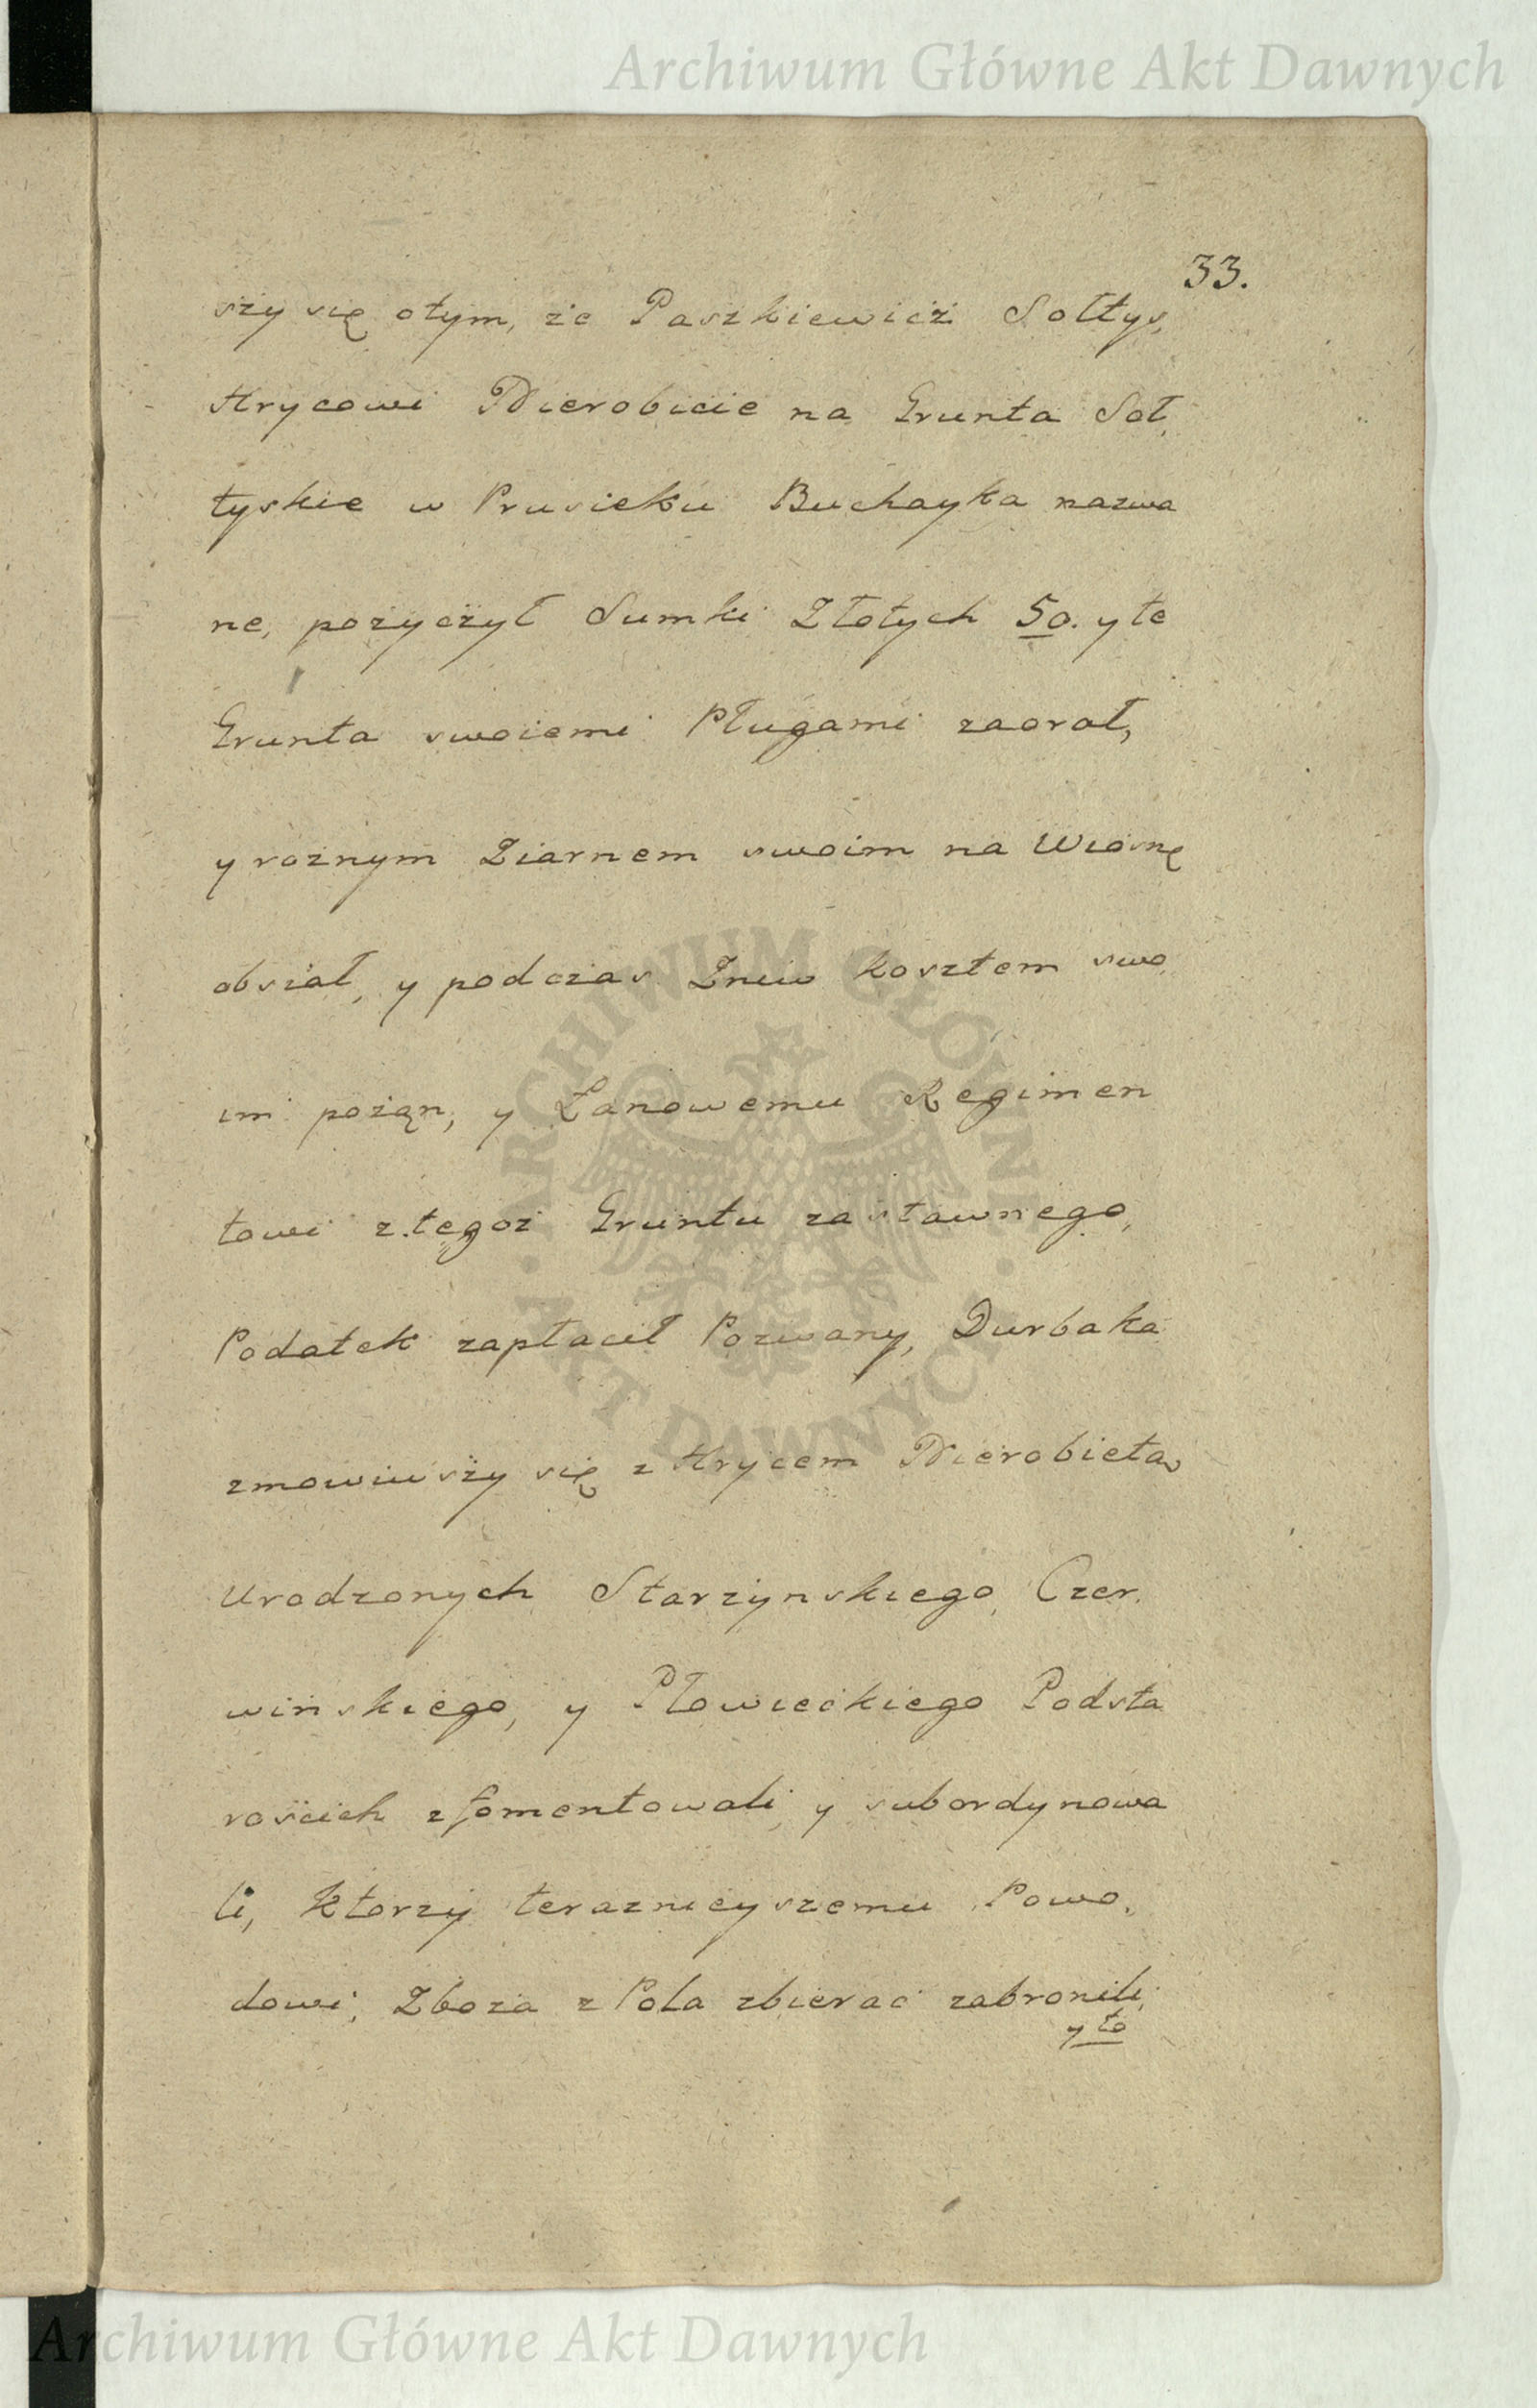 Archiwum Główne Akt Dawnych
33.
szy się otym, że Paszkiewicż Sołtys,
Hrycowi Nierobicie na Grunta Soł
tyskie w Prusieku Buchayka nazwa
ne, pożyczył Sumki Złotych 50. y te
Grunta swoiemi Pługami zaorał,
y rożnym Ziarnem swoim na Wiosnę
obsiał, y podczas Zniw kosztem swo
im pożąn, y Łanowemu Regimen
towi z tegoż Gruntu zastawnego,
Podatek zapłacił Pozwany, Durbaka
zmowiwszy się z Hrycem Nierobieta
Urodzonych Starzynskiego, Czer.
winskiego, y Płowieckiego Podsta
rościch zfomentowali y subordynowa
li, ktorzy teraznieyszemu Powo,
dowi, Zboza z Pola zbierać zabronili,
y to
ARCHIWUM GŁÓWNE AKT DAWNYCH
Archiwum Główne Akt Dawnych